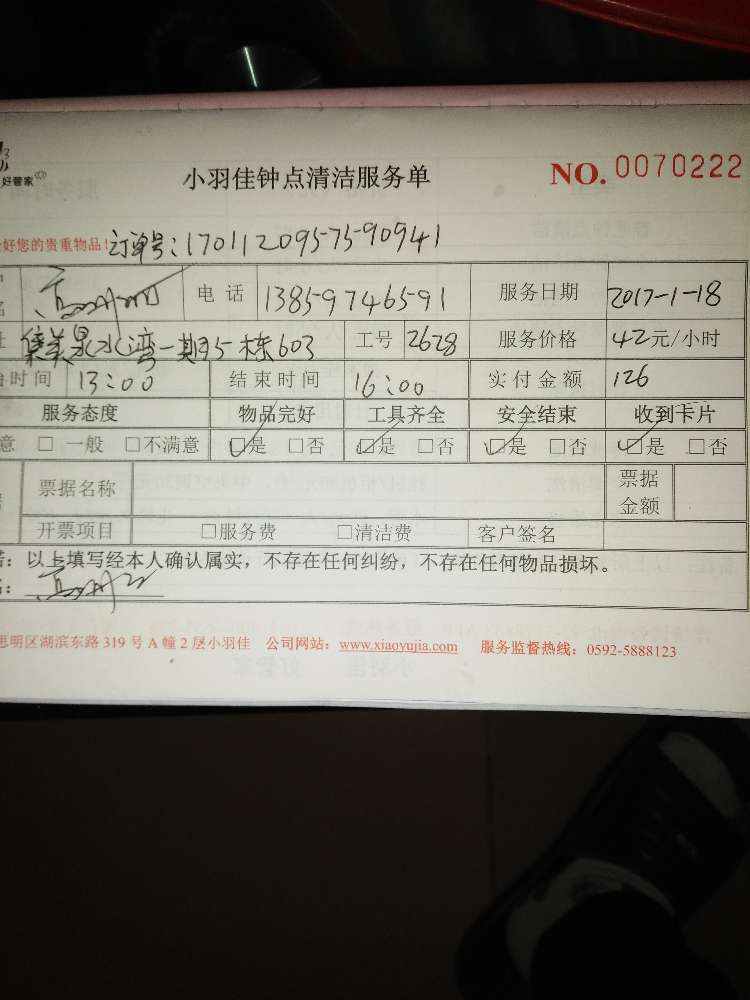 好管家
小羽佳钟点清洁服务单 NO. 0070222
好您的贵重物品! 订单号:17011209575-90941
名 电 话 13859746591 服务日期 2017-1-18
集美泉水湾一期5栋603 工号 2628 服务价格 42元/小时
时间 13:00 结束时间 16:00 实付金额 126
服务态度 物品完好 工具齐全 安全结束 收到卡片
意 □ 一般 □不满意 □是 □否 □是 □否 □是 □否 □是 □否
票据名称 票据金额
开票项目 □服务费 □清洁费 客户签名
:以上填写经本人确认属实,不存在任何纠纷,不存在任何物品损坏。
思明区湖滨东路 319 号 A 幢 2 层小羽佳 公司网站:www.xiaoyujia.com 服务监督热线:0592-5888123